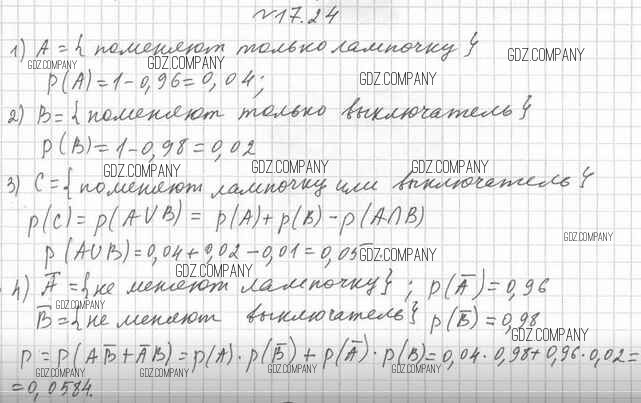 №17.24
1) A = { поменяют только лампочку }
GDZ.COMPANY GDZ.COMPANY GDZ.COMPANY
p(A) = 1 - 0,96 = 0,04; GDZ.COMPANY
2) B = { поменяют только выключатель }
p(B) = 1 - 0,98 = 0,02
GDZ.COMPANY GDZ.COMPANY GDZ.COMPANY
3) C = { поменяют лампочку или выключатель }
p(C) = p(A∪B) = p(A) + p(B) - p(A∩B)
GDZ.COMPANY
p(A∪B) = 0,04 + 0,02 - 0,01 = 0,05 GDZ.COMPANY
GDZ.COMPANY
4) A̅ = { не меняют лампочку }; p(A̅) = 0,96
GDZ.COMPANY
B̅ = { не меняют выключатель } p(B̅) = 0,98
GDZ.COMPANY
p = p(AB̅ + A̅B) = p(A) · p(B̅) + p(A̅) · p(B) = 0,04 · 0,98 + 0,96 · 0,02 =
GDZ.COMPANY GDZ.COMPANY GDZ.COMPANY GDZ.COMPANY
= 0,0584.